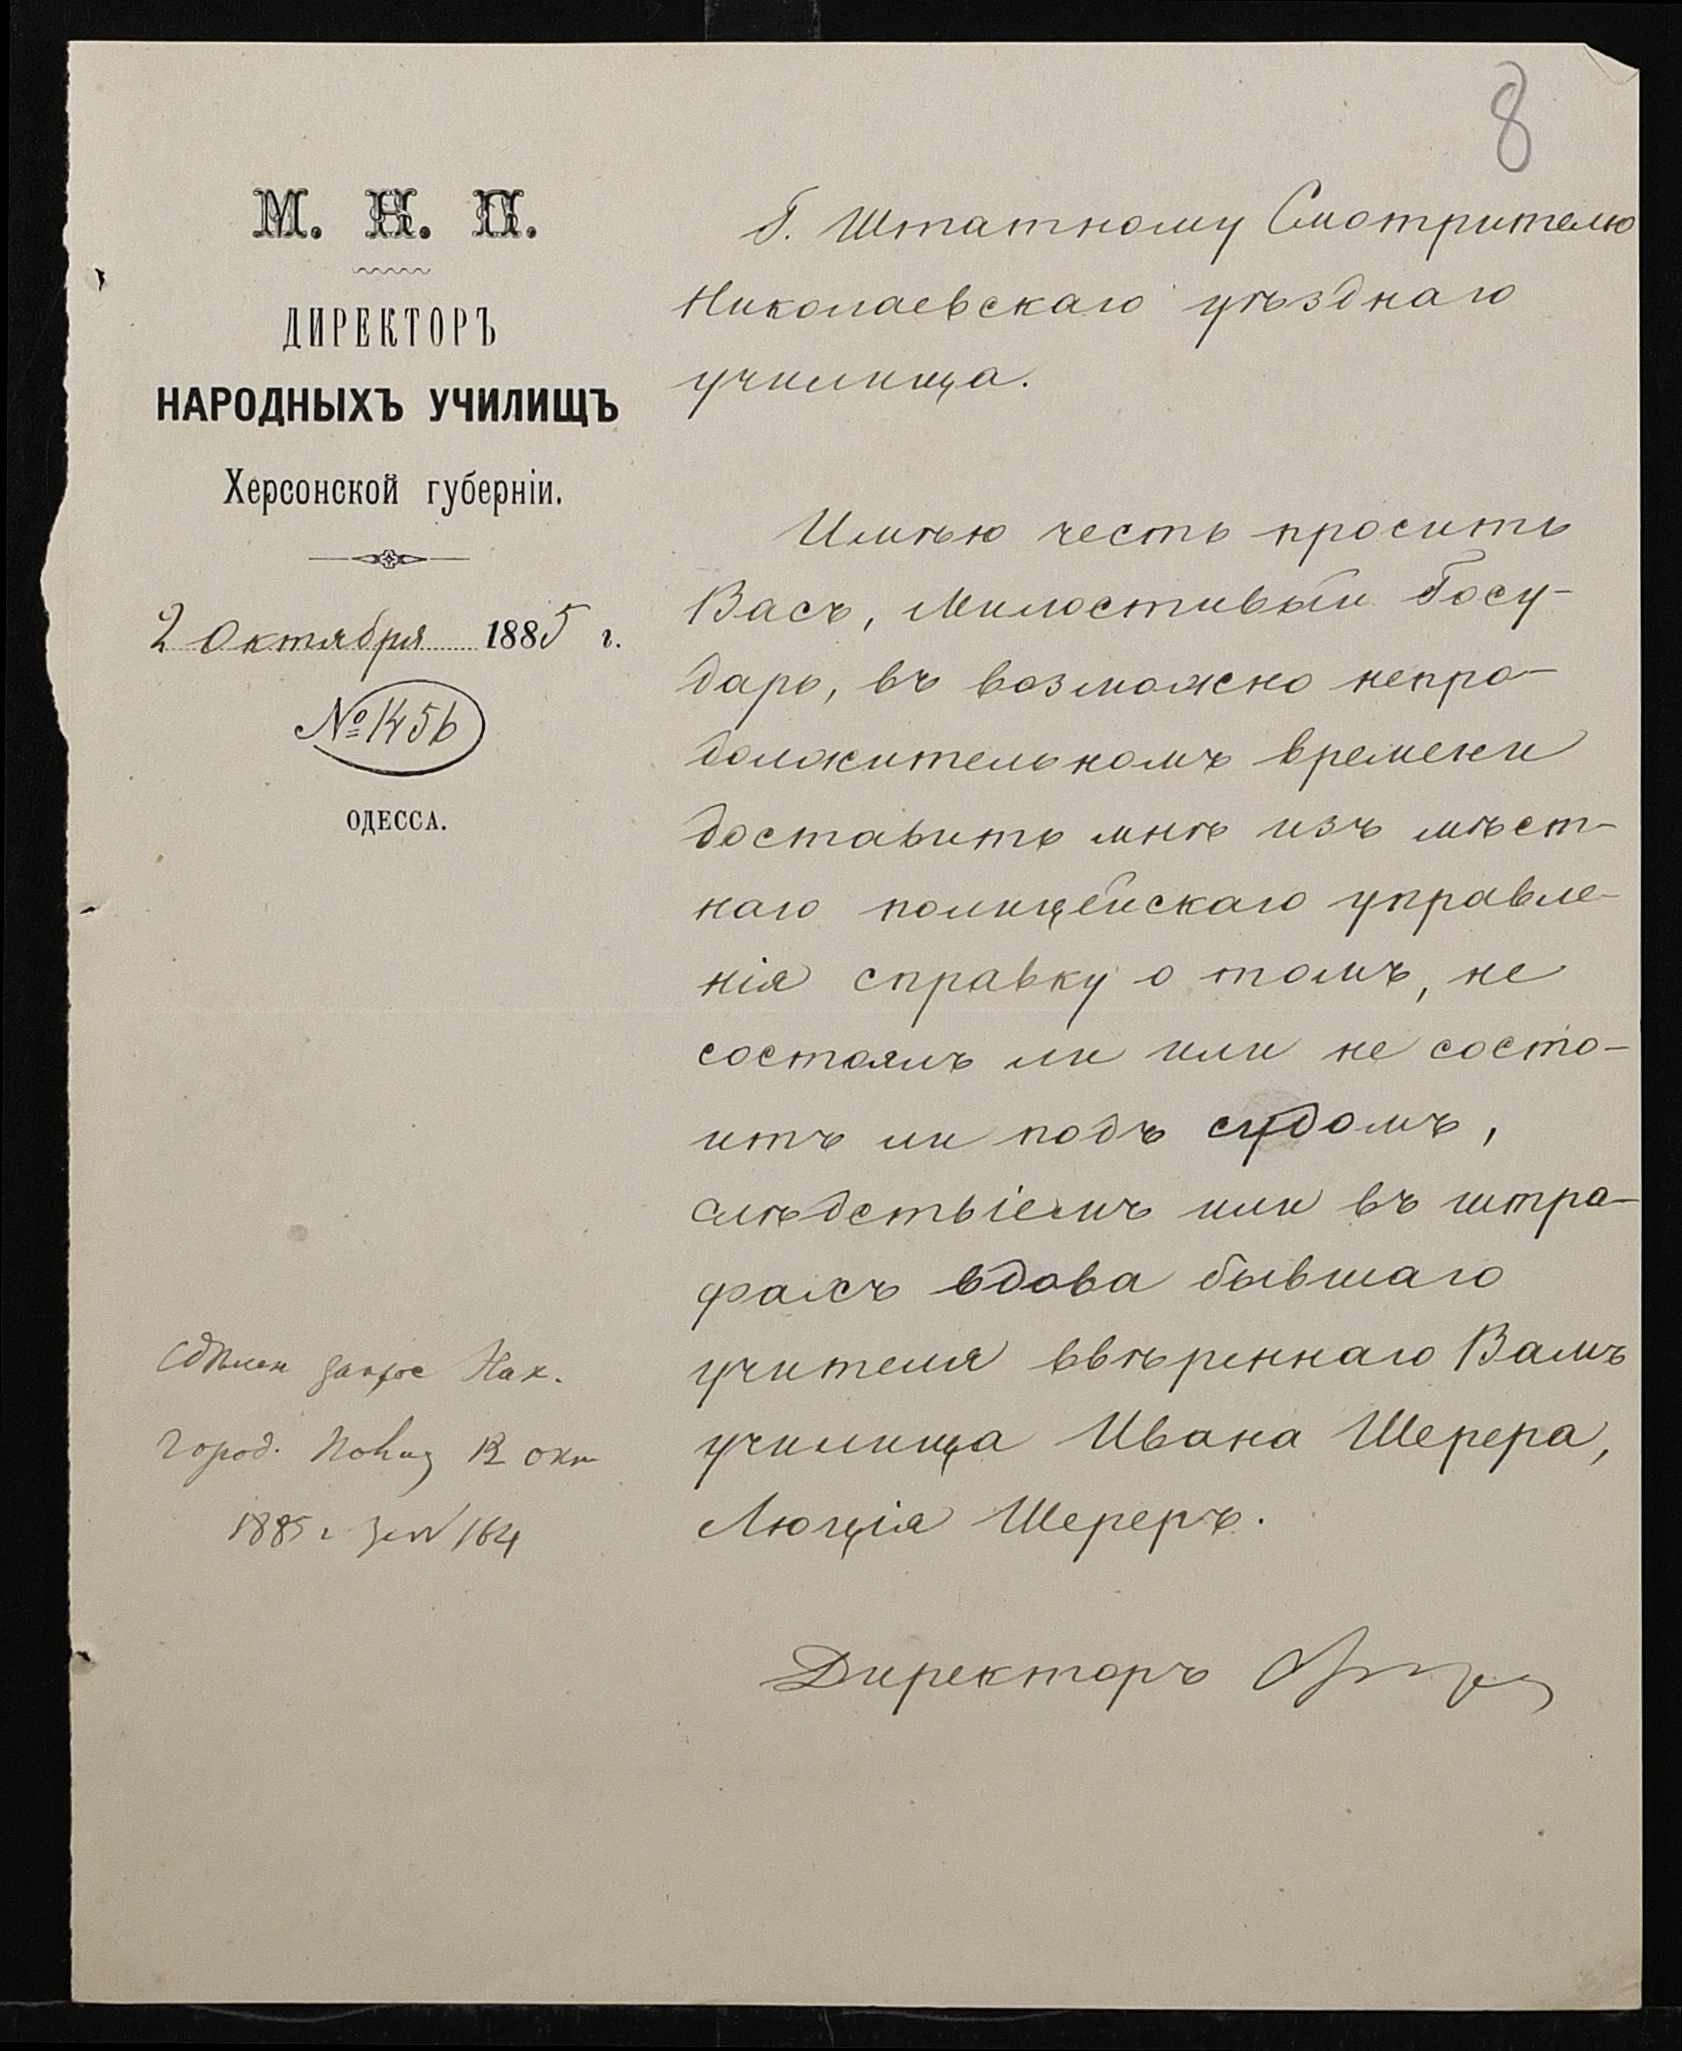 8
М. Н. П.
ДИРЕКТОРЪ
НАРОДНЫХЪ УЧИЛИЩЪ
Херсонской губерніи.
2 Октября 1885 г.
№ 1456
ОДЕССА.
Г. Штатному Смотрителю
Николаевскаго уѣзднаго
училища.
Имѣю честь просить
Васъ, Милостивый Госу-
дарь, въ возможно непро-
должительномъ времени
доставить мнѣ изъ мѣст-
наго полицейскаго управле-
нія справку о томъ, не
состоялъ ли или не состо-
итъ ли подъ судомъ,
слѣдствіемъ или въ штра-
фахъ вдова бывшаго
учителя ввѣреннаго Вамъ
училища Ивана Шерера,
Люція Шереръ.
Директоръ
Сдѣлан запрос Ник.
Город. Полиц 12 окт
1885 г за № 164